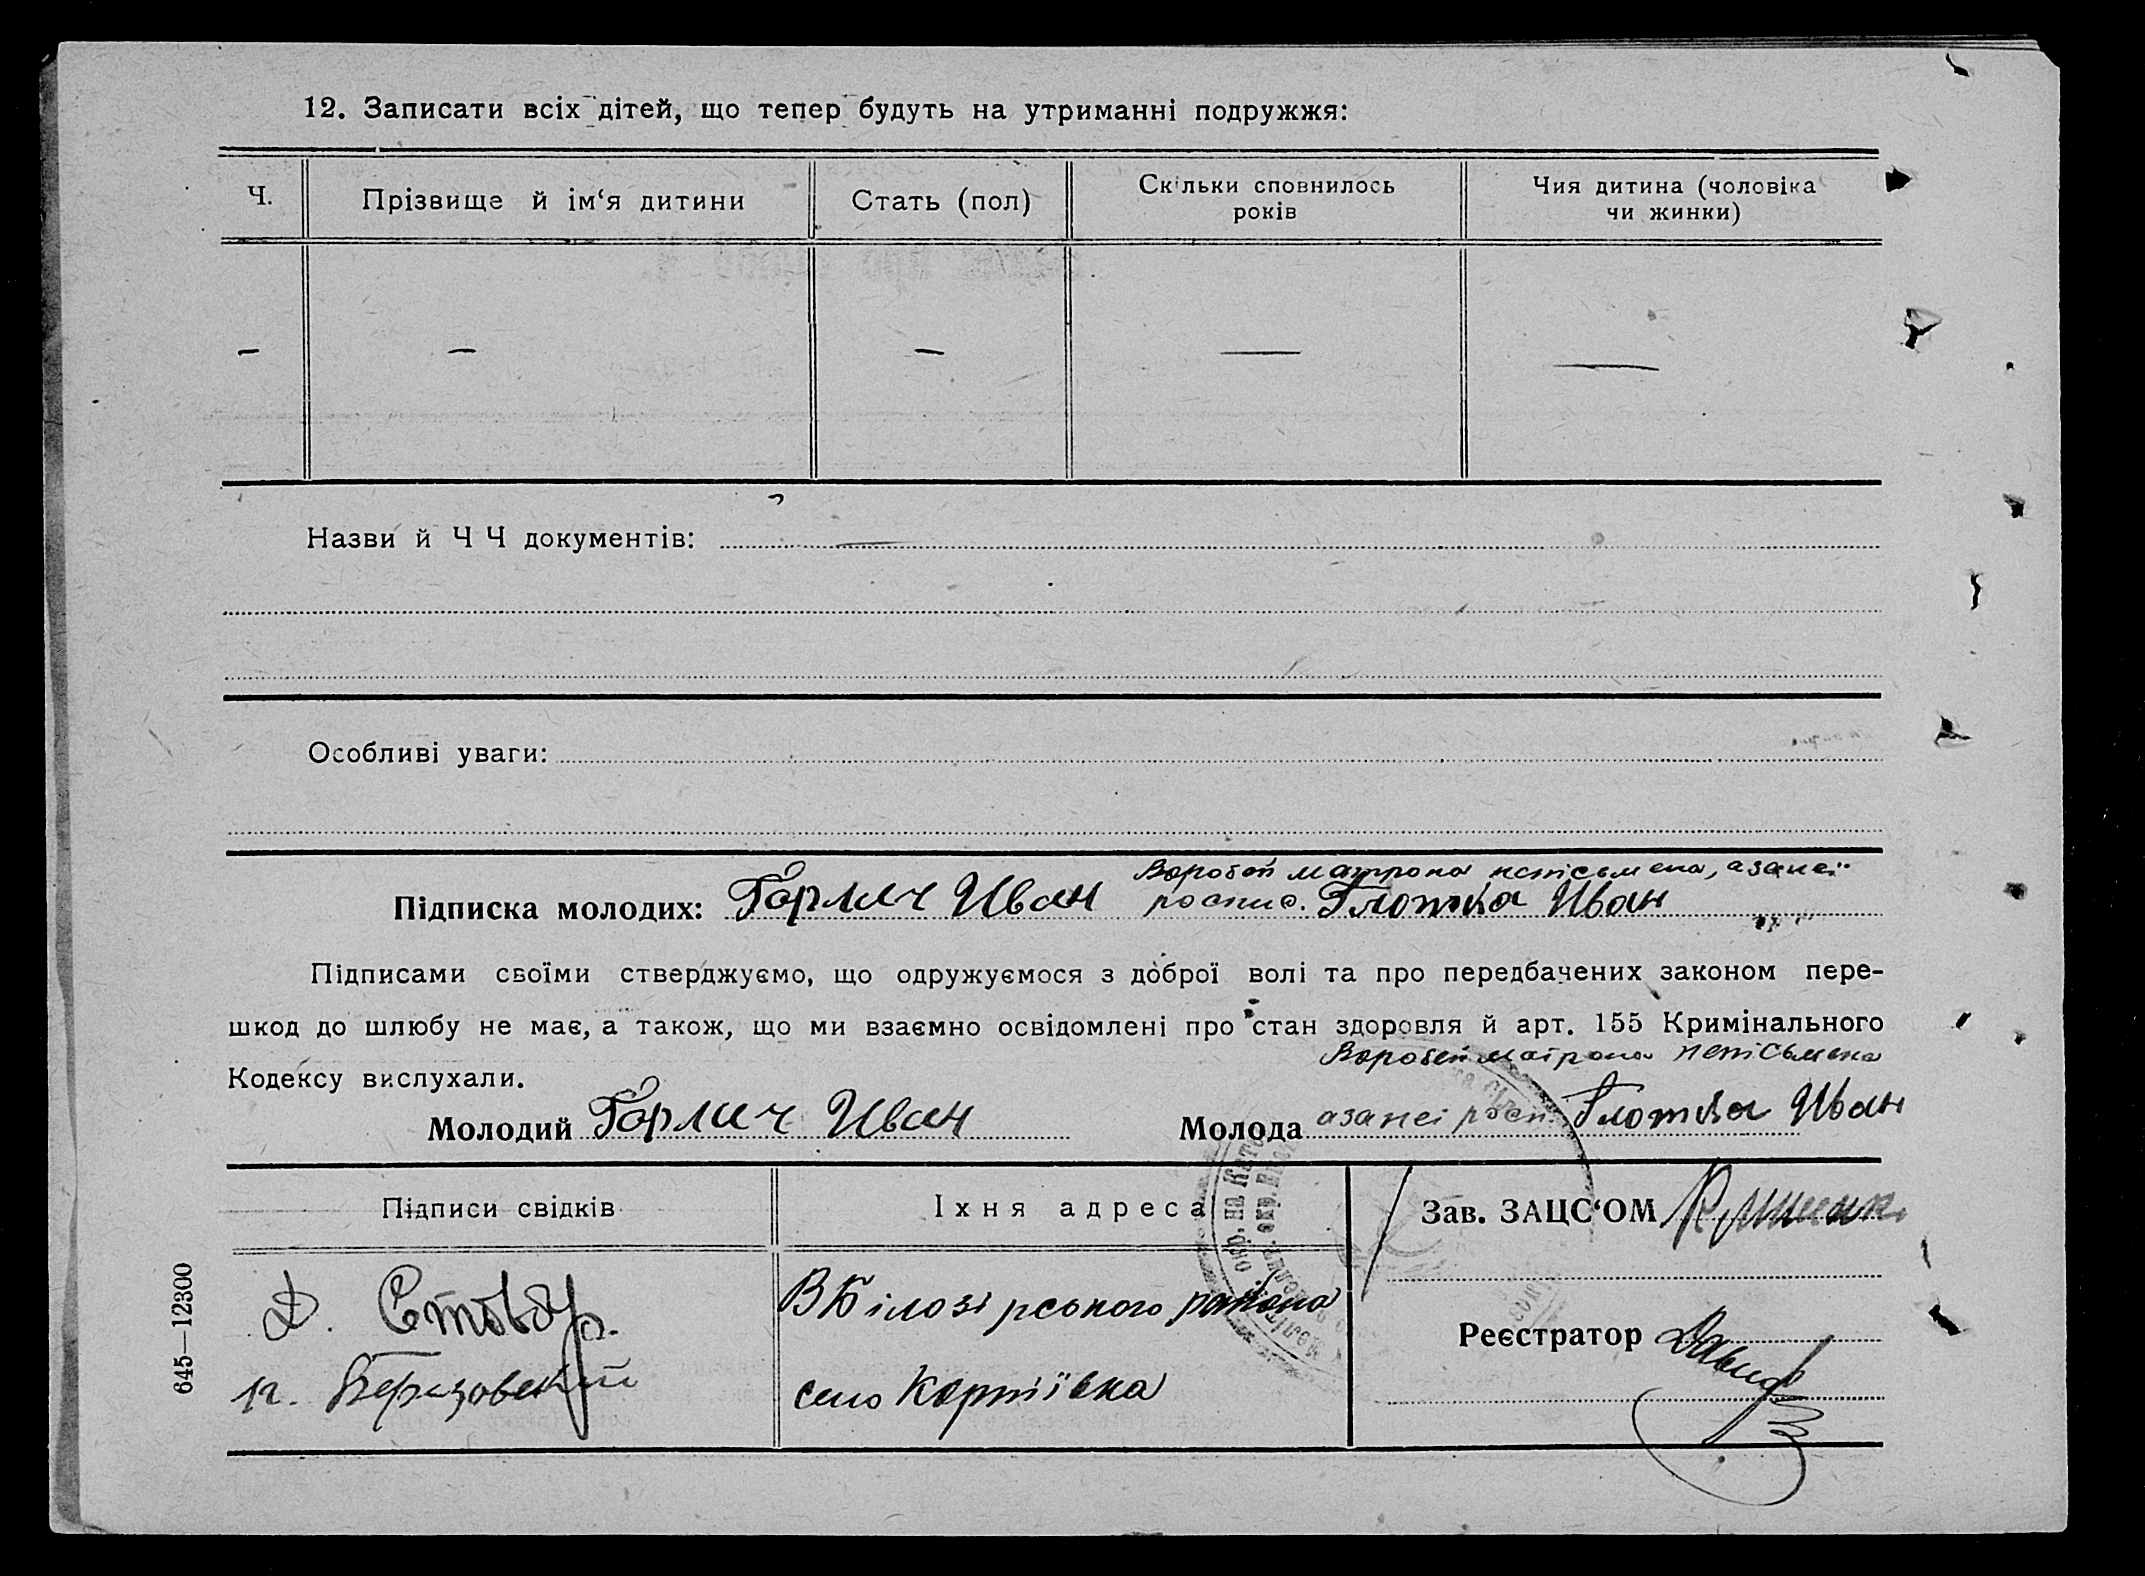 12. Записати всіх дітей, що тепер будуть на утриманні подружжя:
Ч.
Прізвище й ім‘я дитини
Стать (пол)
Скільки сповнилось
років
Чия дитина (чоловіка
чи жинки)
— — — — —
Назви й Ч Ч документів: —
Особливі уваги:
Воробей Матрона непісьмена, а за неї
Підписка молодих: Горлич Иван роспис. Глотка Иван
Підписами своїми стверджуємо, що одружуємося з доброї волі та про передбачених законом пере-
шкод до шлюбу не має, а також, що ми взаємно освідомлені про стан здоровля й арт. 155 Кримінального
Кодексу вислухали.
Воробей Матрона непісьмена
Молодий Горлич Иван
Молода а за неі росп. Глотка Иван
Підписи свідків
Їхня адреса
Зав. ЗАЦС‘ОМ
В Білозірського района
село
Реєстратор
645—12300